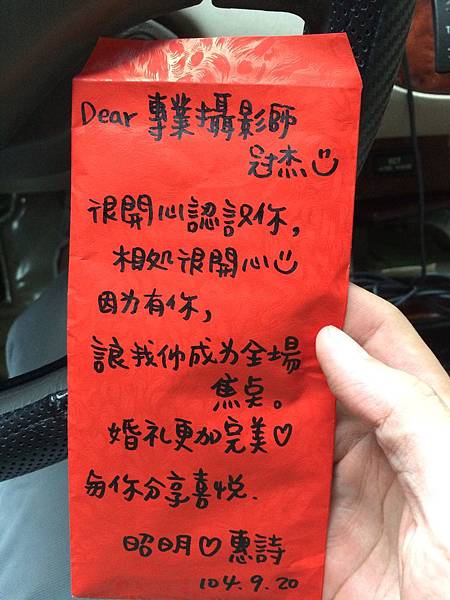 Dear 專業攝影師
冠杰
很開心認識你，
相处很開心
因为有你，
讓我们成为全場
焦点。
婚礼更加完美♡
与你分享喜悅.
昭明♡惠詩
104.9.20